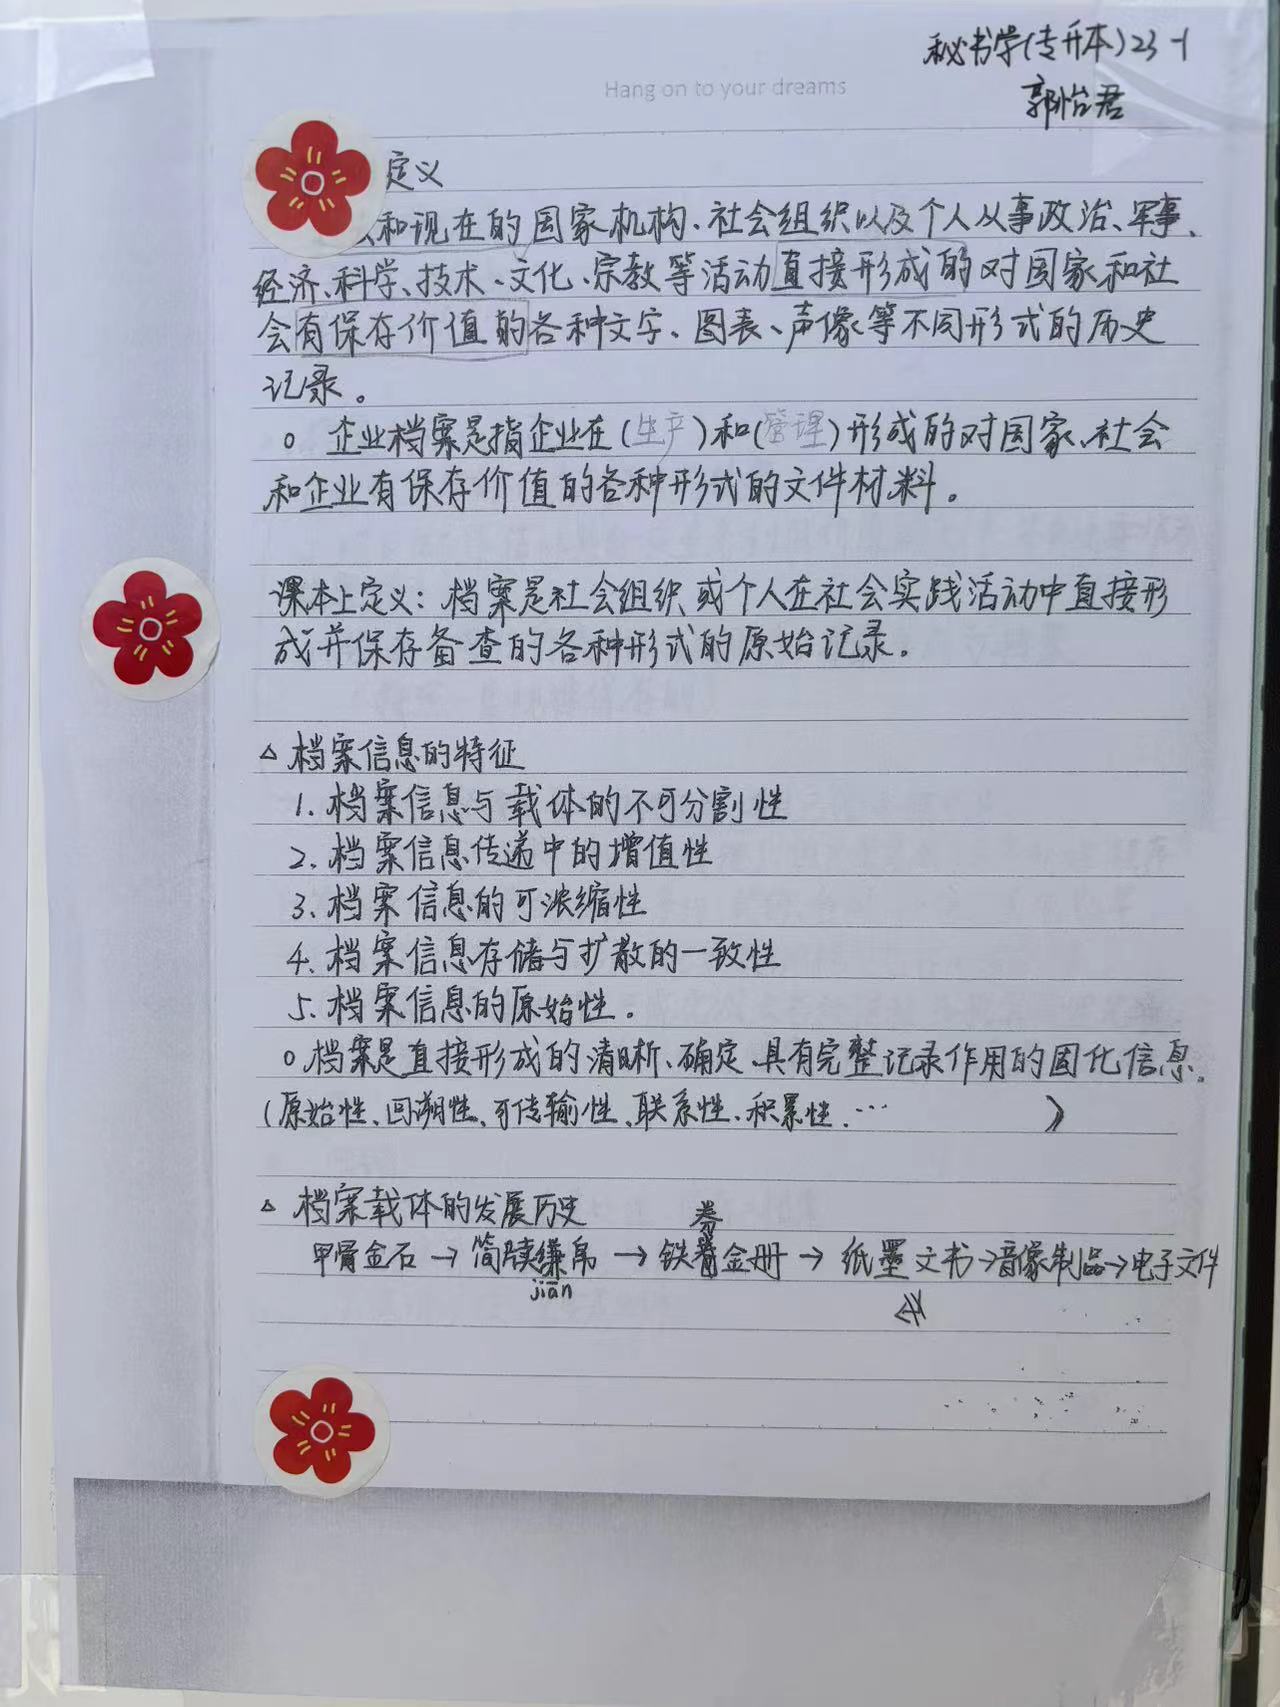 秘书学(专升本)23-1
Hang on to your dreams
郭怡君
定义
和现在的国家机构、社会组织以及个人从事政治、军事、
经济、科学、技术、文化、宗教等活动直接形成的对国家和社
会有保存价值的各种文字、图表、声像等不同形式的历史
记录。
○ 企业档案是指企业在(生产)和(管理)形成的对国家、社会
和企业有保存价值的各种形式的文件材料。
课本上定义:档案是社会组织或个人在社会实践活动中直接形
成并保存备查的各种形式的原始记录。
△ 档案信息的特征
1. 档案信息与载体的不可分割性
2. 档案信息传递中的增值性
3. 档案信息的可浓缩性
4. 档案信息存储与扩散的一致性
5. 档案信息的原始性.
○ 档案是直接形成的清晰、确定、具有完整记录作用的固化信息。
(原始性、回溯性、可传输性、联系性、积累性、… )
△ 档案载体的发展历史
券
甲骨金石→简牍缣帛→铁金册→纸墨文书→音像制品→电子文件
jiān